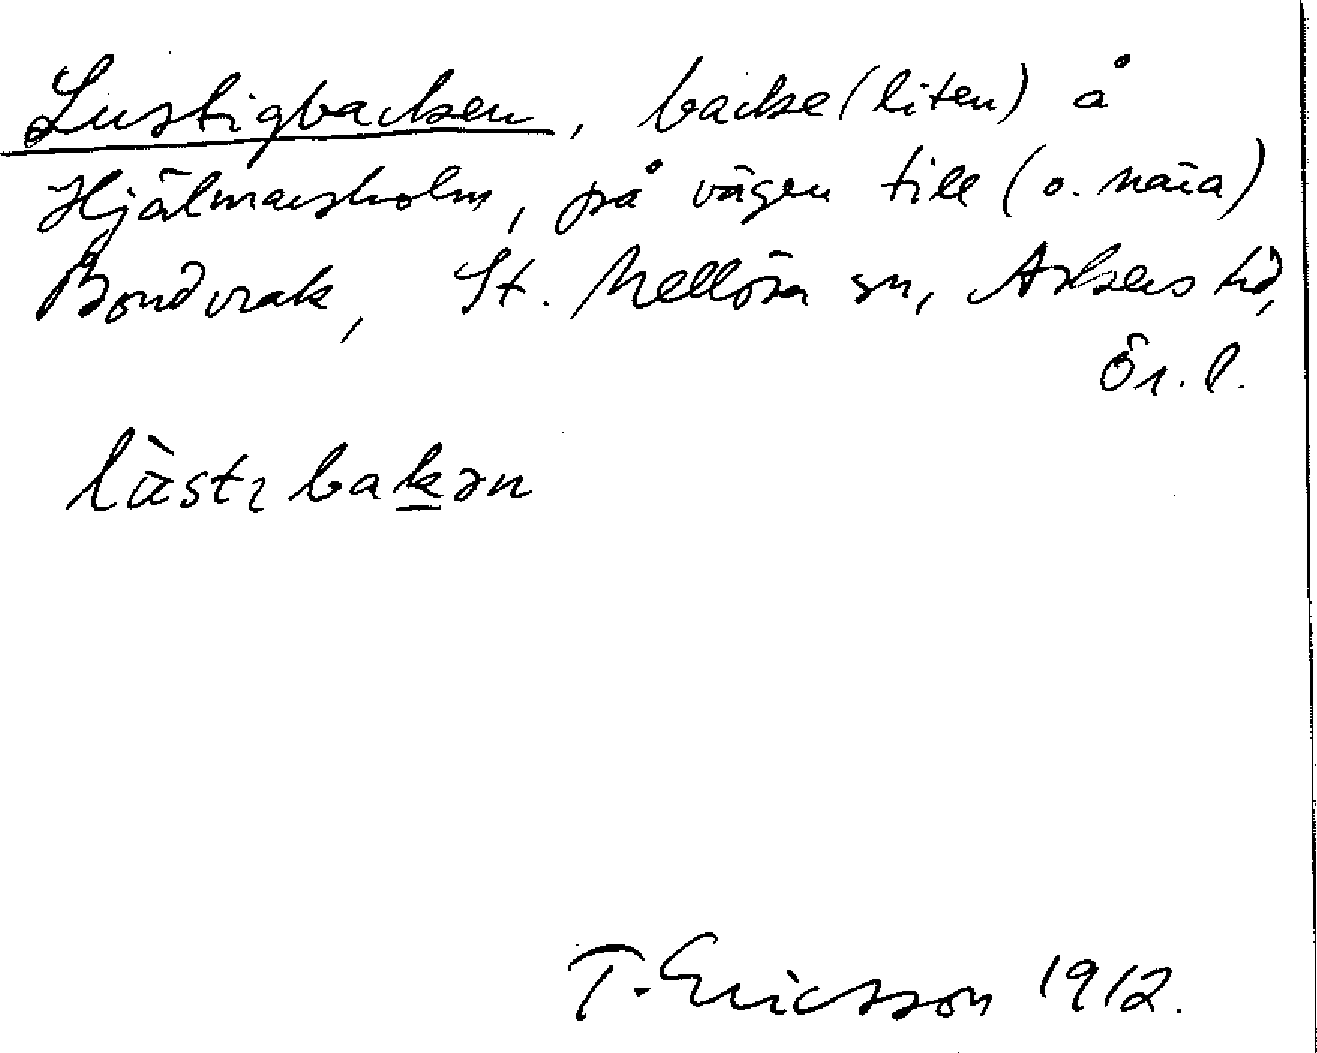 Lustigbacken, backe (liten) å
Hjälmarsholm, på vägen till (o. nära)
Bondvrak, St. Mellösa sn, Askers hd,
Ör. l.
bakən
T. Ericsson 1912.